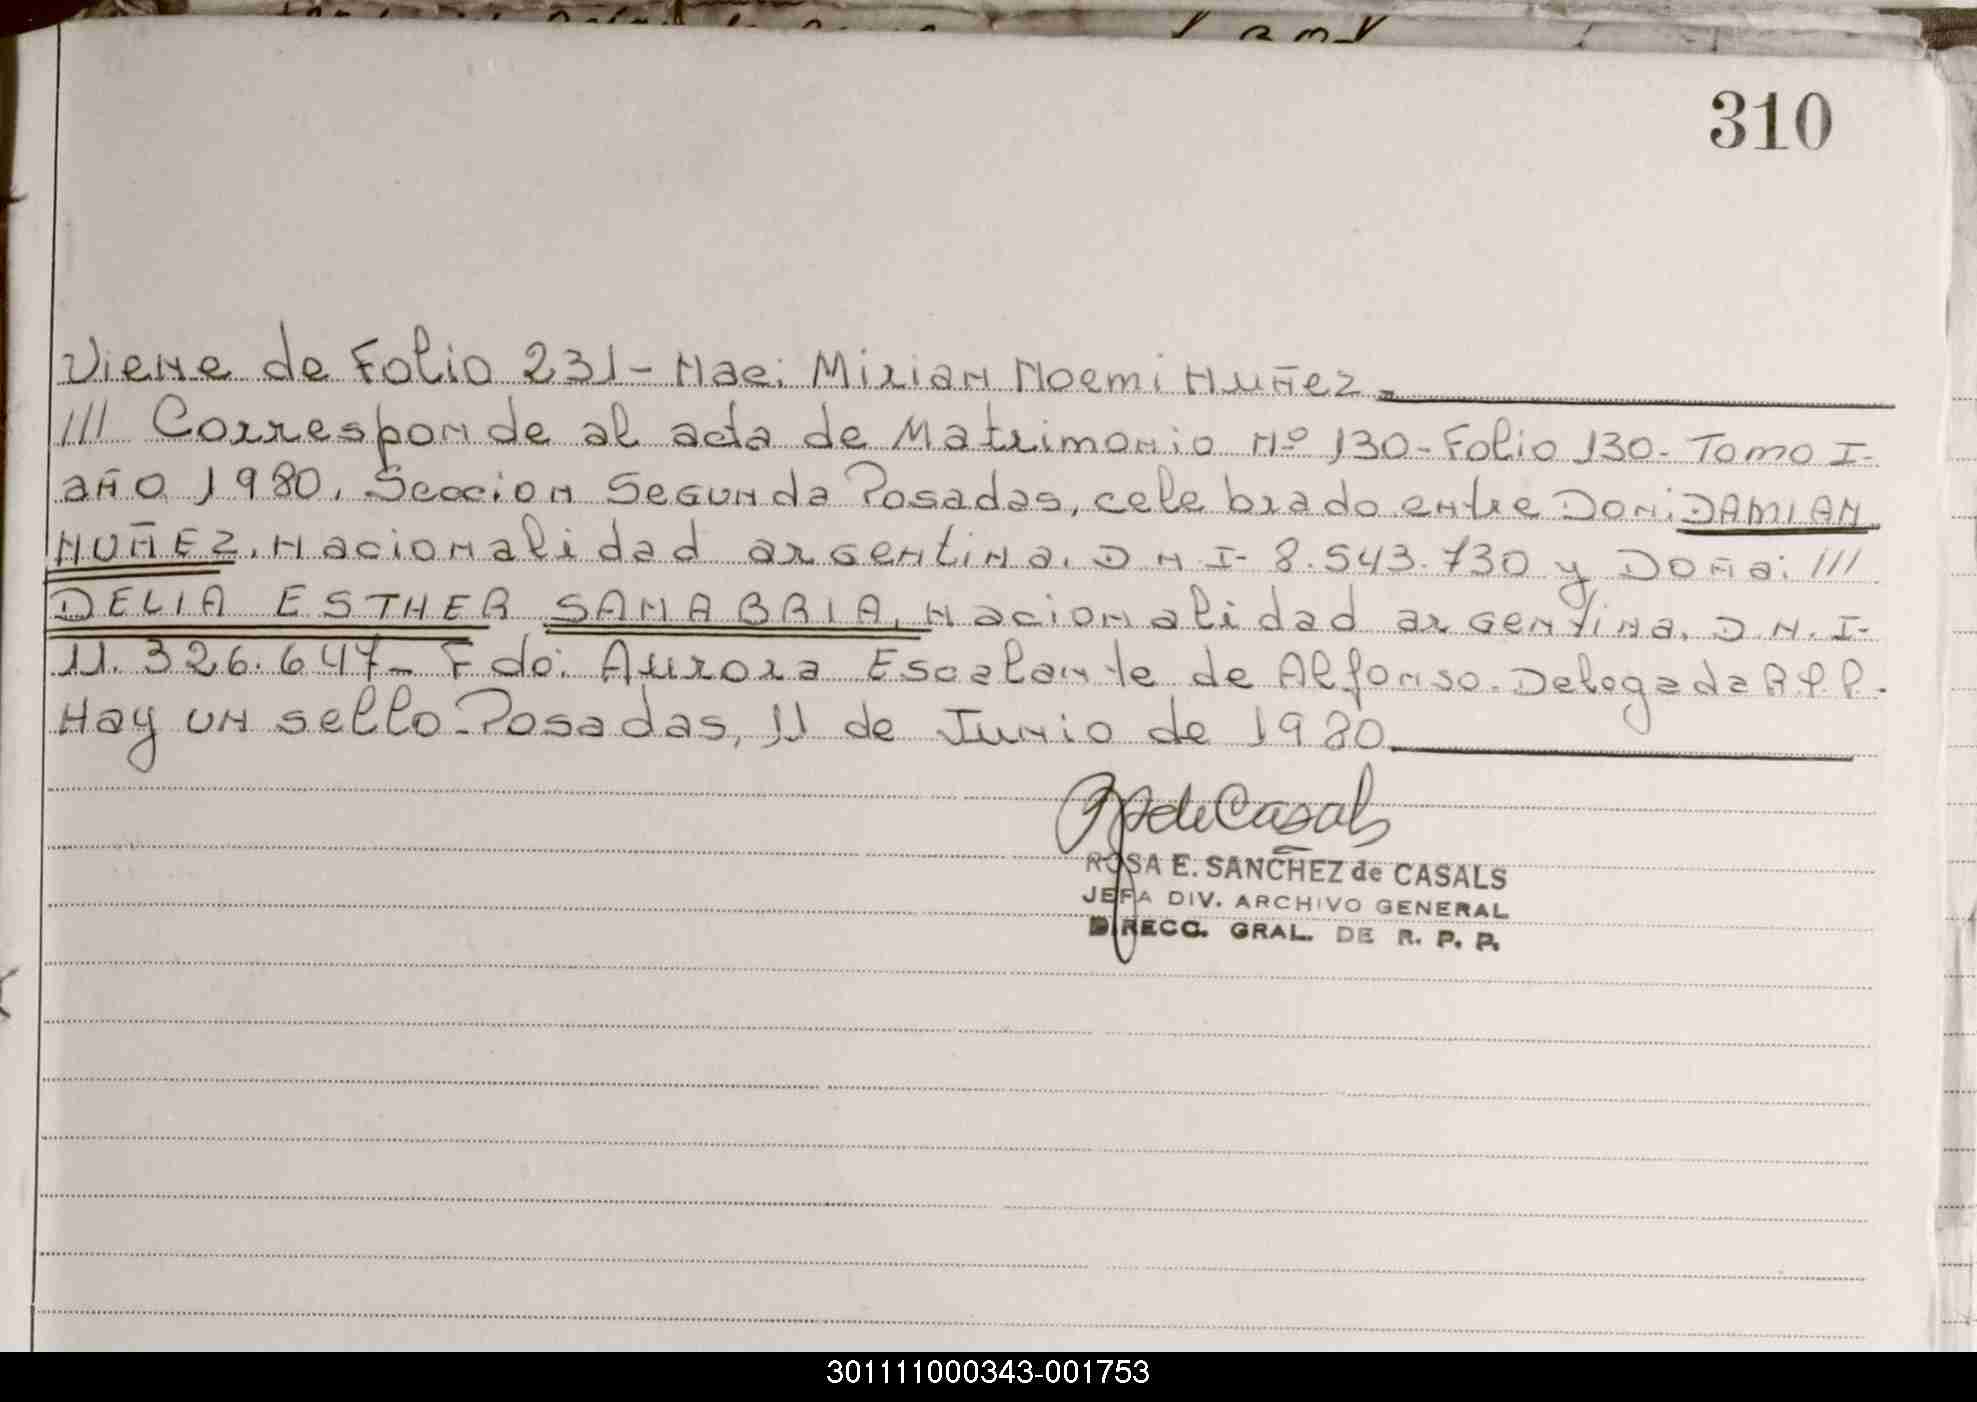 310
Viene de Folio 231- Nac: Mirian Noemi Nuñez.
/// Corresponde al acta de Matrimonio Nº 130- Folio 130- Tomo I-
año 1980. Seccion Segunda Posadas, celebrado entre Don: DAMIAN
NUÑEZ, Nacionalidad argentina. D N I- 8.543.730 y Doña: ///
DELIA ESTHER SANABRIA, Nacionalidad argentina. D.N.I-
11.326.647- Fdo: Aurora Escalante de Alfonso. Delegada R.P.P.-
Hay un sello-Posadas, 11 de Junio de 1980.
de Casals
ROSA E. SANCHEZ de CASALS
JEFA DIV. ARCHIVO GENERAL
DIRECC. GRAL. DE R. P. P.
301111000343-001753